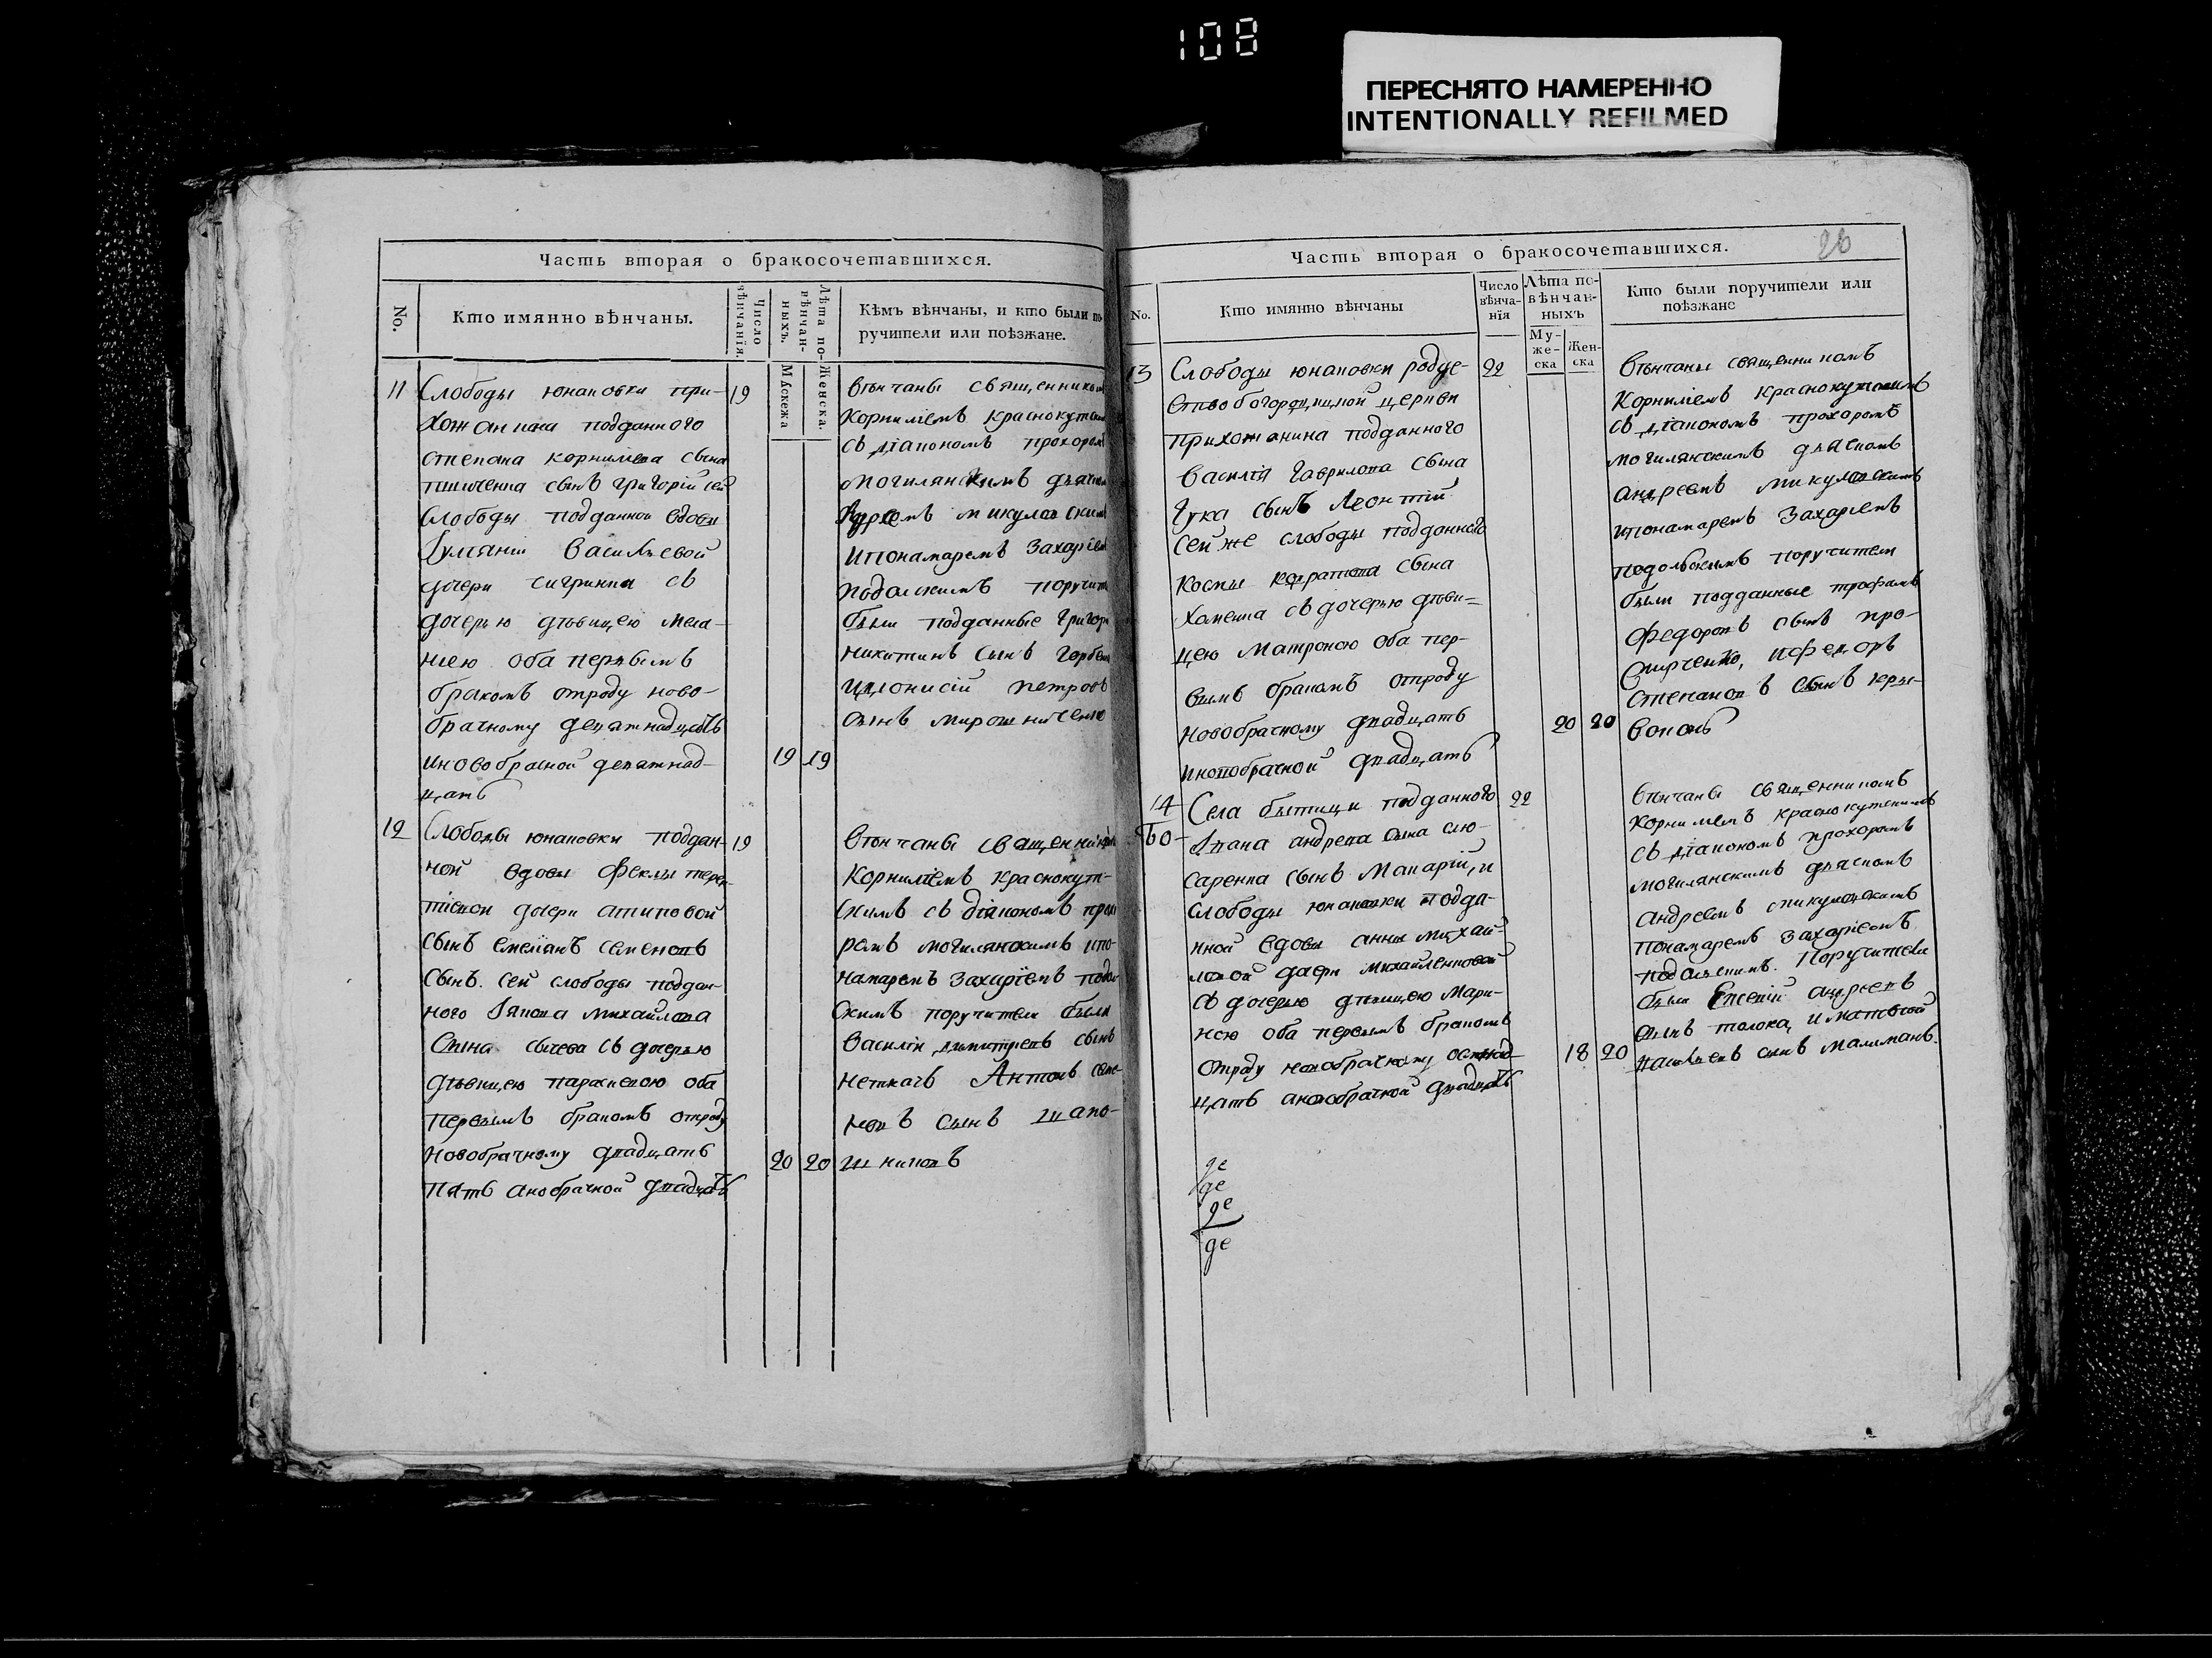 108
ПЕРЕСНЯТО НАМЕРЕННО
INTENTIONALLY REFILMED
Часть вторая о бракосочетавшихся.
No.
Кто имянно вѣнчаны.
Число вѣнчанїя.
Лѣта повѣнчанныхъ.
Мужеска
Женска.
Кѣмъ вѣнчаны, и кто были по-
ручители или поѣзжане.
11 Слободы юнаковки при- 19
хожанина подданного
степана корнилиева сына
сынъ григорїй сей
слободы подданной вдовы
Васильевой
дочери съ
дочерью дѣвицею мела-
ниею оба первымъ
бракомъ отроду ново-
брачному девятнадцать
иновобрасной девятнад- 19 19
цать
вѣнчаны священникомъ
Корнилїемъ краснокутским
съ дїакономъ прохоромъ
могилянскимъ дьячком
микуловским
ипонамаремъ захарїем
подолскимъ поручит
были подданные григор
никитинъ сынъ
идионисїй петровъ
сынъ мирошниченко
12 Слободы юнаковки поддан- 19
ной вдовы феклы терен-
тїевой дочери
сынъ емелїанъ семеновъ
сынъ. сей слободы поддан-
ного михайлова
сына сычева съ дочерью
дѣвицею параскевою оба
первымъ бракомъ отроду
новобрачному двадцать 20 20
пять анобрачной двадцать
вѣнчаны священником
Корнилїемъ краснокут-
скимъ съ дїакономъ прохо
ромъ могилянскимъ ипо-
намаремъ захарїемъ подол
скимъ поручители были
василїи димитрїевъ сынъ
неткачъ Антонъ семе-
новъ сынъ шапо-
шниковъ
Часть вторая о бракосочетавшихся.
26
No.
Кто имянно вѣнчаны
Число вѣнча-нїя
Лѣта по-вѣнчан-ныхъ
Му-же-ска
Жен-ска
Кто были поручители или
поѣзжане
13 Слободы юнаковки рожде- 22
ство богородицкой церкви
прихожанина подданного
василїя гаврилова сына
гука сынъ Леонтїй
сей же слободы подданного
космы сына
хоменка съ дочерью дѣви-
цею матроною оба пер-
вымъ бракомъ отроду
новобрачному двадцать 20 20
иновобрачной двадцать
вѣнчаны священникомъ
Корнилїемъ краснокутскимъ
съ дїакономъ прохоромъ
могилянскимъ дьячкомъ
андреемъ микуловскимъ
ипонамаремъ захарїемъ
подольскимъ поручители
были подданные трофимъ
федоровъ сынъ про-
, ифедоръ
степановъ сынъ
14 Села бытици подданного 22
андреева сына слю-
саренка сынъ Макарїй, и
слободы юнаковки подда-
нной вдовы анны михай-
ловой дочери михайленковой
съ дочерью дѣвицею мари-
ною оба первымъ бракомъ
отроду новобрачному осмнад- 18 20
цатьановобрачной двадцать
вѣнчаны священникомъ
Корнилїемъ краснокутскимъ
съ дїакономъ прохоромъ
могилянскимъ дьяскомъ
андреемъ микуловскимъ
понамаремъ захарїемъ
подольскимъ. поручители
были андреевъ
сынъ толока, иматвей
сынъ
де
де
де
де